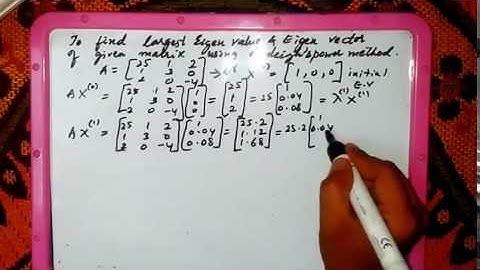 To find largest Eigen value & Eigen vector
of given matrix using power method.
A = [25 1 2; 1 3 0; 2 0 -4] → X⁽⁰⁾ = [1, 0, 0] initial E.V
A X⁽⁰⁾ = [25 1 2; 1 3 0; 2 0 -4] [1; 0; 0] = [25; 1; 2] = 25 [1; 0.04; 0.08] = λ⁽¹⁾ X⁽¹⁾
A X⁽¹⁾ = [25 1 2; 1 3 0; 2 0 -4] [1; 0.04; 0.08] = [25.2; 1.12; 1.68] = 25.2 [1; 0.04